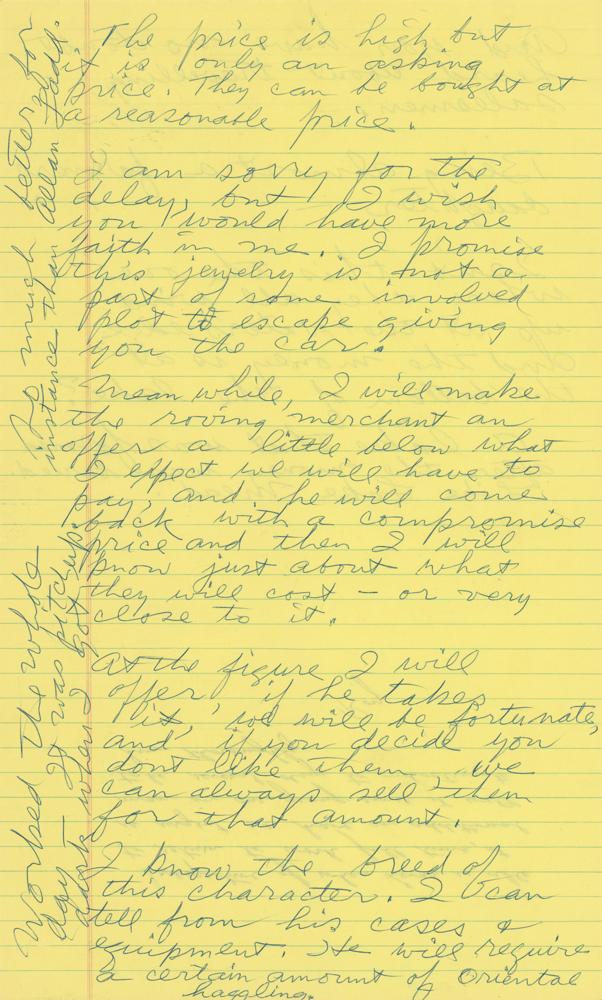 The price is high but
it is only an asking
price. They can be bought at
a reasonable price.
I am sorry for the
delay, but I wish
you would have more
faith in me. I promise
this jewelry is not a
part of some involved
plot to escape giving
you the car.
Mean while, I will make
the roving merchant an
offer a little below what
I expect we will have to
pay, and he will come
back with a compromise
price and then I will
know just about what
they will cost – or very
close to it.
At the figure I will
offer, if he takes
it, we will be fortunate,
and, if you decide you
dont like them, we
can always sell them
for that amount.
I know the breed of
this character. I can
tell from his cases &
equipment. He will require
a certain amount of Oriental
haggling.
Worked the whole
day – It was pitch
dark when I got up.
Be much better for
instance than Allan Ladd.